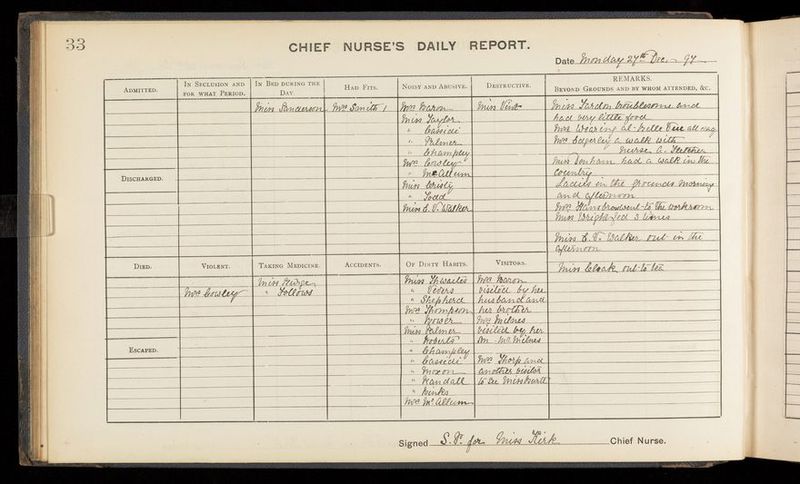 33
CHIEF NURSE'S DAILY REPORT.
Date Monday 27th Dec. 97
ADMITTED.
IN SECLUSION AND FOR WHAT PERIOD.
IN BED DURING THE DAY
HAD FITS.
NOISY AND ABUSIVE.
DESTRUCTIVE.
REMARKS.
BEYOND GROUNDS AND BY WHOM ATTENDED, &C.
Miss Sanderson
Mrs Smith 1
Mrs Maron
Miss Taylor
" Cassidi
" Palmer
" Champley
Mrs Cowley
" McCallum
Miss Christy
" Todd
Miss E. V. Walker
Miss
Miss troublesome and
had very little food
Mrs at all day
Mrs a walk with
Nurse A.
Miss had a walk in the
Country
Ladies in the grounds morning
and afternoon
Mrs went to the workroom
Miss Wright fed 3 times
Miss E. V. Walker out in the
afternoon
Miss Cloak out to tea
DISCHARGED.
DIED.
VIOLENT.
TAKING MEDICINE.
ACCIDENTS.
OF DIRTY HABITS.
VISITORS.
Mrs Cowley
Miss
" Follows
Miss Thwaites
" Peters
" Shepherd
Mrs Thompson
" Mower
Miss Palmer
" Roberts
" Champley
" Cassidi
" Moxon
" Randall
" Hinks
Mrs McCallum
Mrs Maron
visited by her
husband and
her brother
Mrs Milnes
visited by her
son Mr Milnes
Mrs Thorp and
another visitor
to see Miss
ESCAPED.
Signed S. V. for Miss Kirk Chief Nurse.